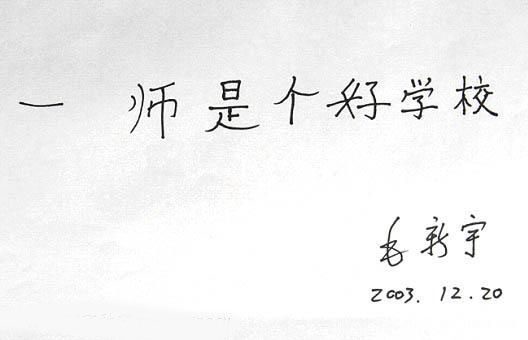 一 师是个好学校
毛新宇
2003.12.20